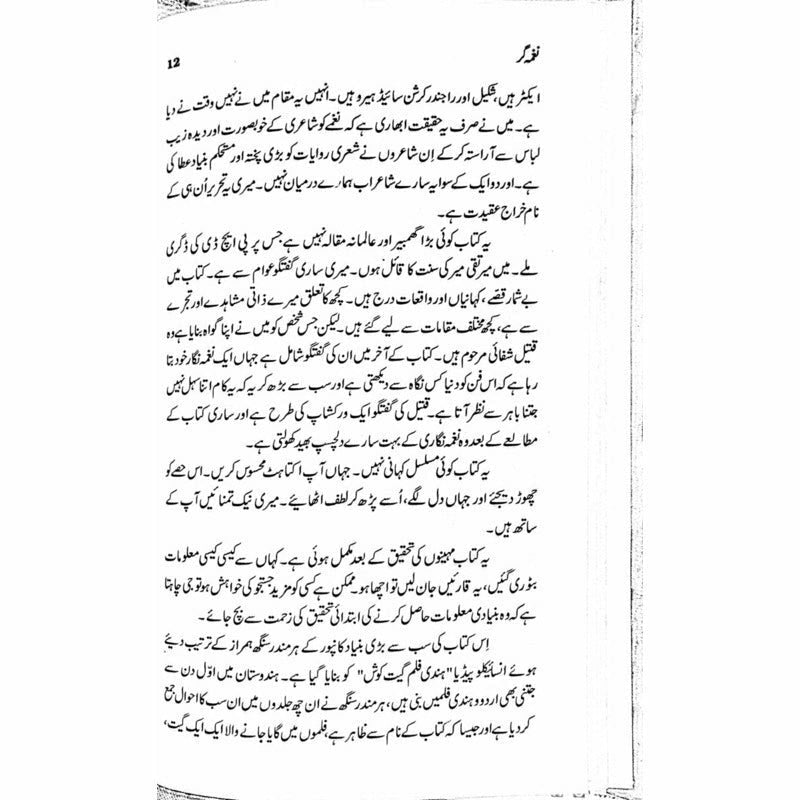 نغمہ گر
12
ایکٹر ہیں، شکیل اور راجندر کرشن سائیڈ ہیرو ہیں۔ انہیں یہ مقام میں نے نہیں وقت نے دیا
ہے۔ میں نے صرف یہ حقیقت ابھاری ہے کہ نغمے کو شاعری کے خوبصورت اور دیدہ زیب
لباس سے آراستہ کر کے اِن شاعروں نے شعری روایات کو بڑی پختہ اور مستحکم بنیاد عطا کی
ہے۔ اور دو ایک کے سوا یہ سارے شاعر اب ہمارے درمیان نہیں۔ میری یہ تحریر اُن ہی کے
نام خراج عقیدت ہے۔
یہ کتاب کوئی بڑا گھمبیر اور عالمانہ مقالہ نہیں ہے جس پر پی ایچ ڈی کی ڈگری
ملے۔ میں میر تقی میر کی سنت کا قائل ہوں۔ میری ساری گفتگو عوام سے ہے۔ کتاب میں
بے شمار قصے، کہانیاں اور واقعات درج ہیں۔ کچھ کا تعلق میرے ذاتی مشاہدے اور تجربے
سے ہے، کچھ مختلف مقامات سے لیے گئے ہیں۔ لیکن جس شخص کو میں نے اپنا گواہ بنایا ہے وہ
قتیل شفائی مرحوم ہیں۔ کتاب کے آخر میں ان کی گفتگو شامل ہے جہاں ایک نغمہ نگار خود بتا
رہا ہے کہ اس فن کو دنیا کس نگاہ سے دیکھتی ہے اور سب سے بڑھ کر یہ کہ یہ کام اتنا سہل نہیں
جتنا باہر سے نظر آتا ہے۔ قتیل کی گفتگو ایک ورکشاپ کی طرح ہے اور ساری کتاب کے
مطالعے کے بعد وہ نغمہ نگاری کے بہت سارے دلچسپ بھید کھولتی ہے۔
یہ کتاب کوئی مسلسل کہانی نہیں۔ جہاں آپ اکتاہٹ محسوس کریں۔ اس حصے کو
چھوڑ دیجئے اور جہاں دل لگے، اُسے پڑھ کر لطف اٹھائیے۔ میری نیک تمنائیں آپ کے
ساتھ ہیں۔
یہ کتاب مہینوں کی تحقیق کے بعد مکمل ہوئی ہے۔ کہاں سے کیسی کیسی معلومات
بٹوری گئیں، یہ قارئین جان لیں تو اچھا ہو۔ ممکن ہے کسی کو مزید جستجو کی خواہش ہو تو جی چاہتا
ہے کہ وہ بنیادی معلومات حاصل کرنے کی ابتدائی تحقیق کی زحمت سے بچ جائے۔
اِس کتاب کی سب سے بڑی بنیاد کانپور کے ہرمندر سنگھ ہمراز کے ترتیب دیئے
ہوئے انسائیکلو پیڈیا "ہندی فلم گیت کوش" کو بنایا گیا ہے۔ ہندوستان میں اوّل دن سے
جتنی بھی اردو و ہندی فلمیں بنی ہیں، ہرمندر سنگھ نے ان چھ جلدوں میں ان سب کا احوال جمع
کر دیا ہے اور جیسا کہ کتاب کے نام سے ظاہر ہے، فلموں میں گایا جانے والا ایک ایک گیت،